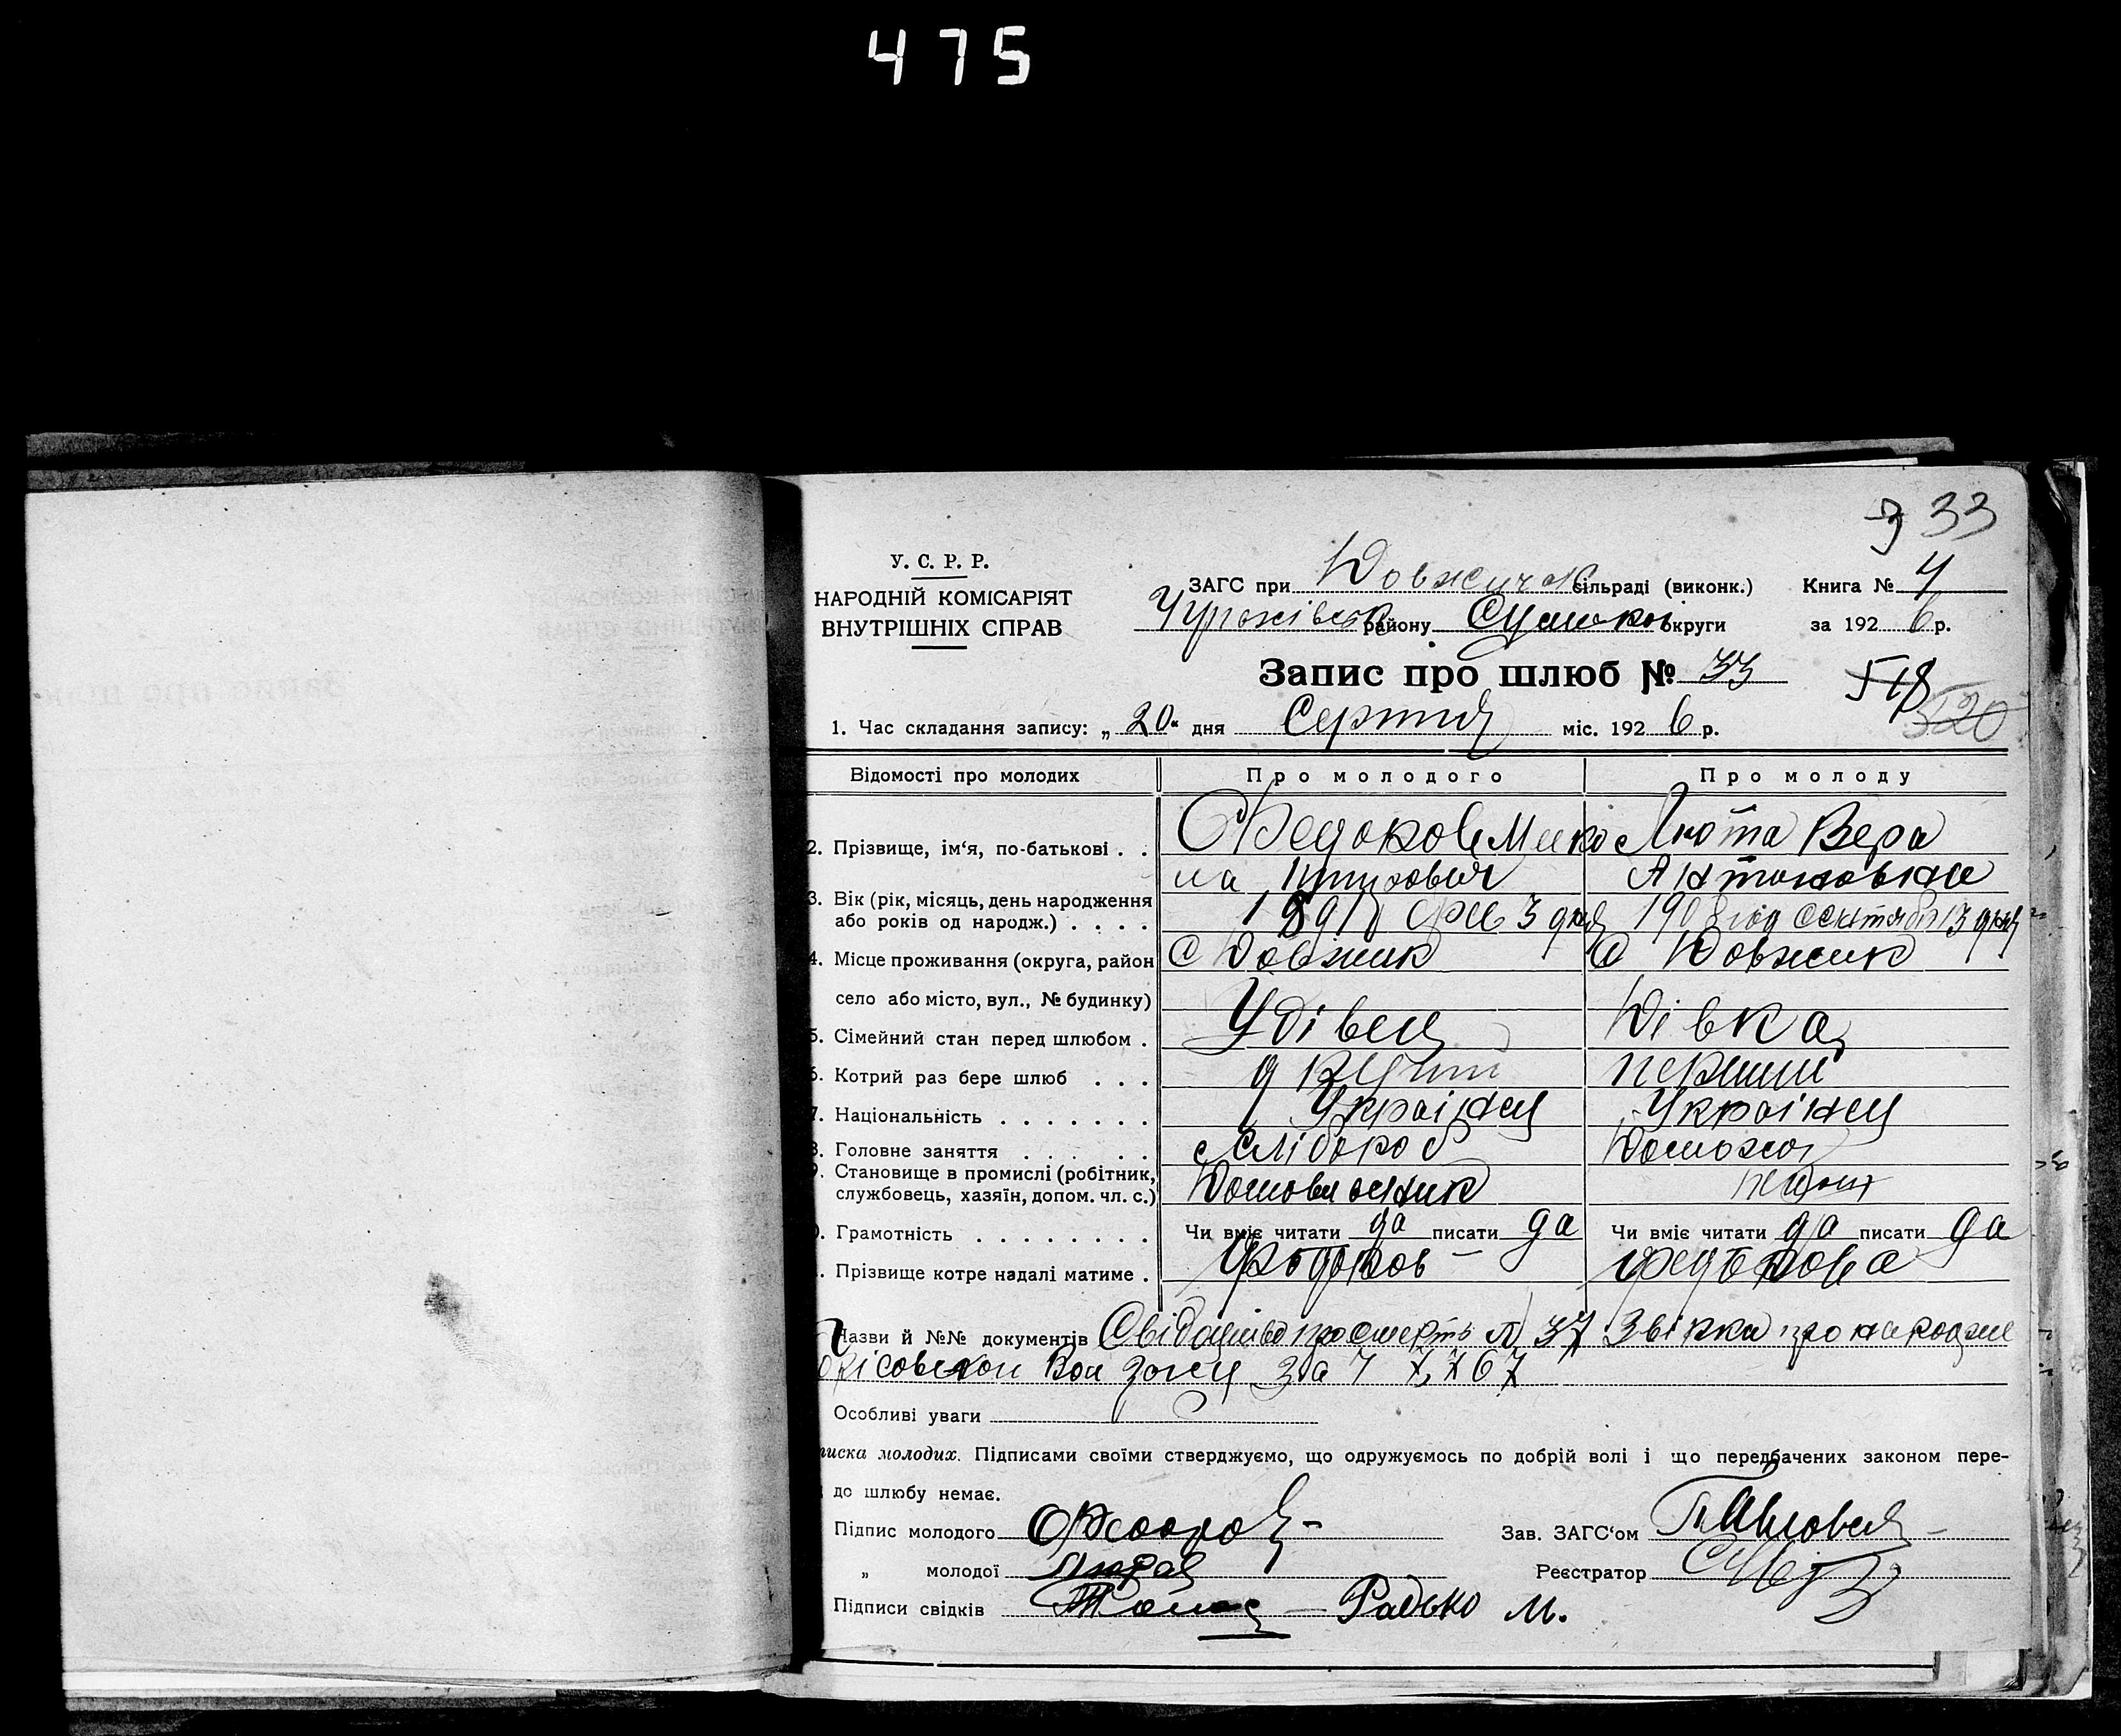 475
33
У. С. Р. Р.
НАРОДНІЙ КОМІСАРІЯТ
ВНУТРІШНІХ СПРАВ
ЗАГС при Довжичок сільраді (виконк.) Книга №
району округи за 1926 р.
Запис про шлюб № 33
518
520
1. Час складання запису: „20“ дня Серпня міс. 1926 р.
Відомості про молодих Про молодого Про молоду
2. Прізвище, ім‘я, по-батькові . . Федоров Мико Люта Вера
ла Антоновна
3. Вік (рік, місяць, день народження
або років од народж.) . . . . 3 дня 1908 год Сентября 13 дня
4. Місце проживання (округа, район С Довжик С Довжик
село або місто, вул., № будинку)
5. Сімейний стан перед шлюбом . Удівец Дівка
6. Котрий раз бере шлюб . . . другий перший
7. Національність . . . . . . . Українец Українец
8. Головне заняття . . . . . . Хлібороб
9. Становище в промислі (робітник,
службовець, хазяїн, допом. чл. с.)
Грамотність . . . . . . . . Чи вміє читати да писати да Чи вміє читати да писати да
Прізвище котре надалі матиме . Федоров Федорова
Назви й №№ документів про смерть № 37 про нарождне
за
Особливі уваги
писка молодих. Підписами своїми стверджуємо, що одружуємось по добрій волі і що передбачених законом пере-
до шлюбу немає.
Підпис молодого Федоров Зав. ЗАГС‘ом
„ молодої Реєстратор
Підписи свідків Радько М.